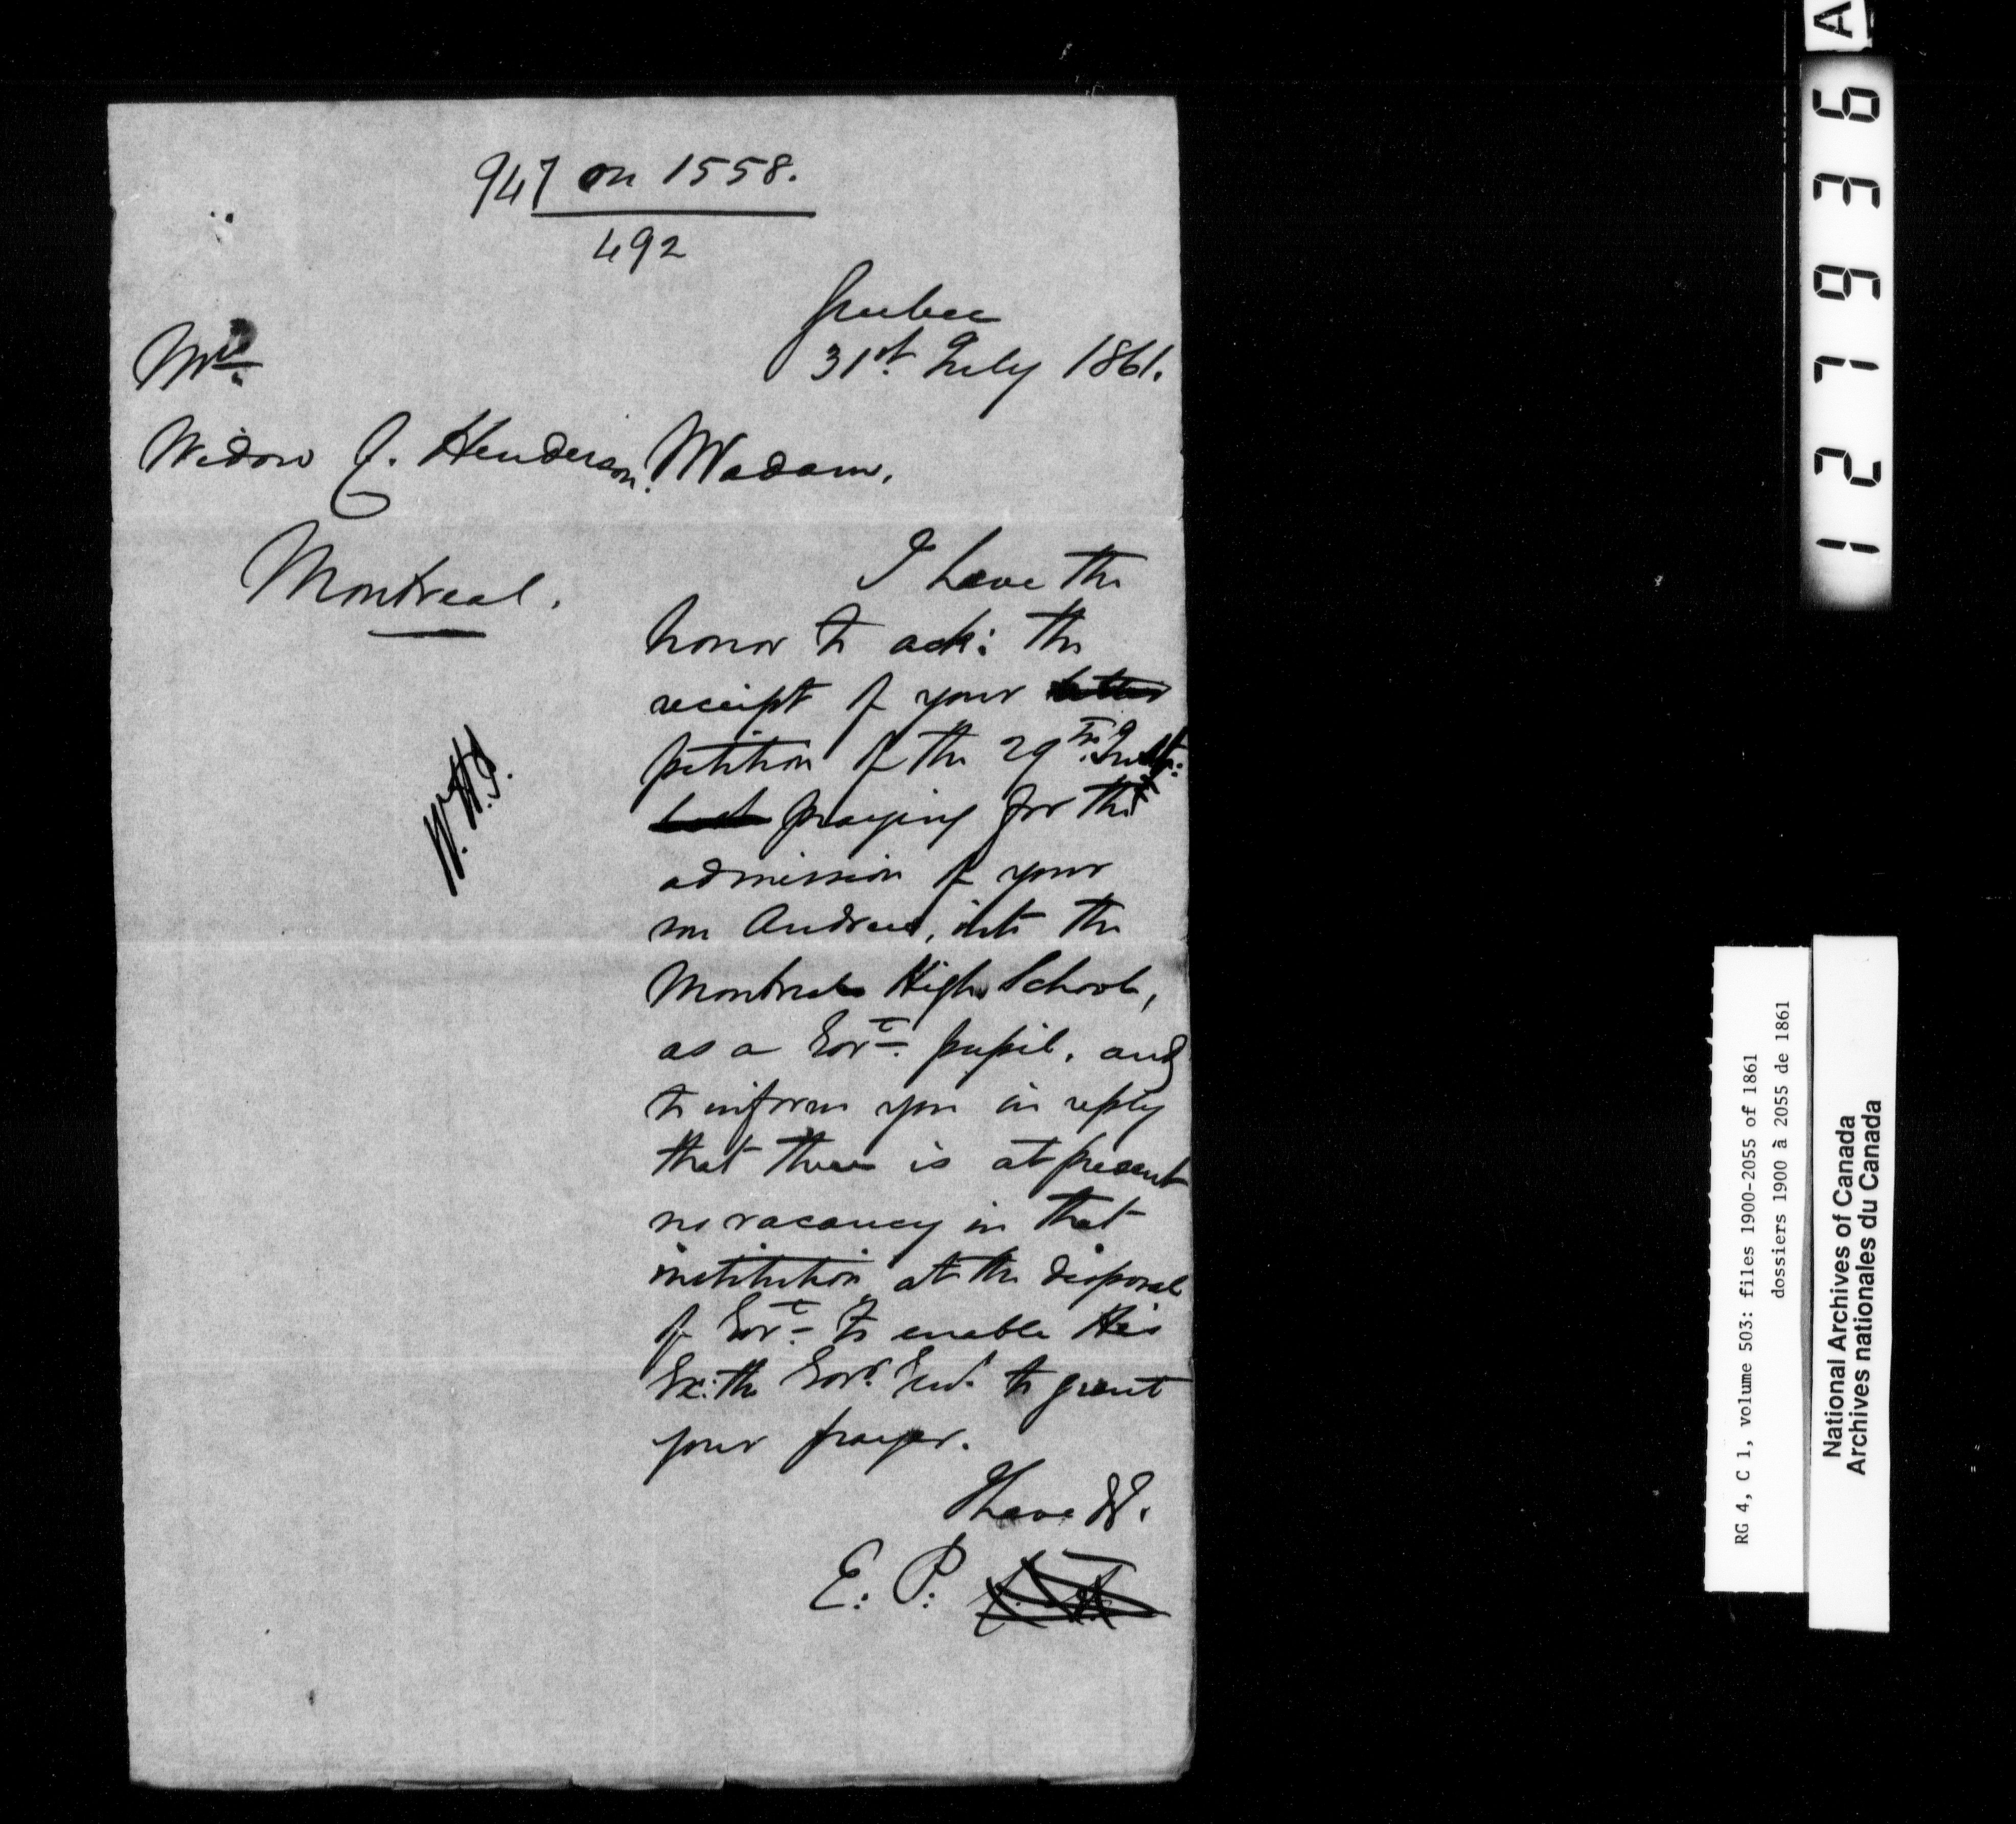 947 on 1558.
492
Quebec
31st July 1861.
Mrs.
Widow J. Henderson.
Montreal.
W.H.J.
Madam,
I have the
honor to ack: the
receipt of your letter
petition of the 29th Inst:
praying for the
admission of your
son Andrew, into the
Montreal High School,
as a Govt. pupil, and
to inform you in reply
that there is at present
no vacancy in that
institution at the disposal
of Govt. to enable His
Ex: the Govr. Genl. to grant
your prayer.
I have &c.
E. P:
A
127936
RG 4, C 1, volume 503: files 1900-2055 of 1861
dossiers 1900 à 2055 de 1861
National Archives of Canada
Archives nationales du Canada